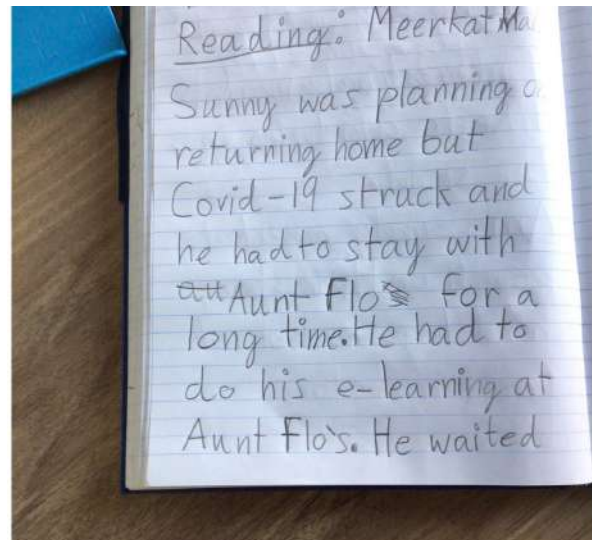 Reading: Meerkat
Sunny was planning
returning home but
Covid-19 struck and
he had to stay with
Aunt Flo for a
long time. He had to
do his e-learning at
Aunt Flo's. He waited